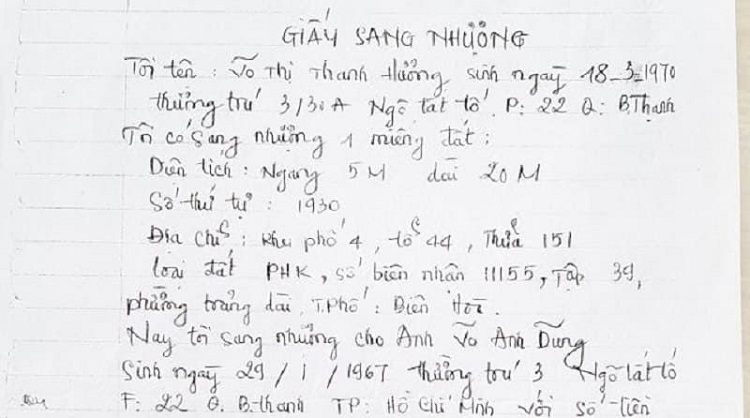 GIẤY SANG NHƯỢNG
Tôi tên : Võ Thị Thanh Hưởng sinh ngày 18-3-1970
thường trú 3/30A Ngô tất tố. P: 22 Q: B.Thạnh
Tôi có sang nhượng 1 miếng đất :
Diên tích : Ngang 5M dài 20M
Số thứ tự : 1930
Địa chỉ : khu phố 4, tổ 44, Thửa 151
loại đất PHK, số biên nhân 11155, Tập 39,
phường trảng dài, T.Phố : Biên Hòa.
Nay tôi sang nhượng cho Anh Võ Anh Dũng
Sinh ngày 29/1/1967 thường trú 3 Ngô tất tố
F: 22 Q. B.thạnh TP: Hồ Chí Minh với số tiền